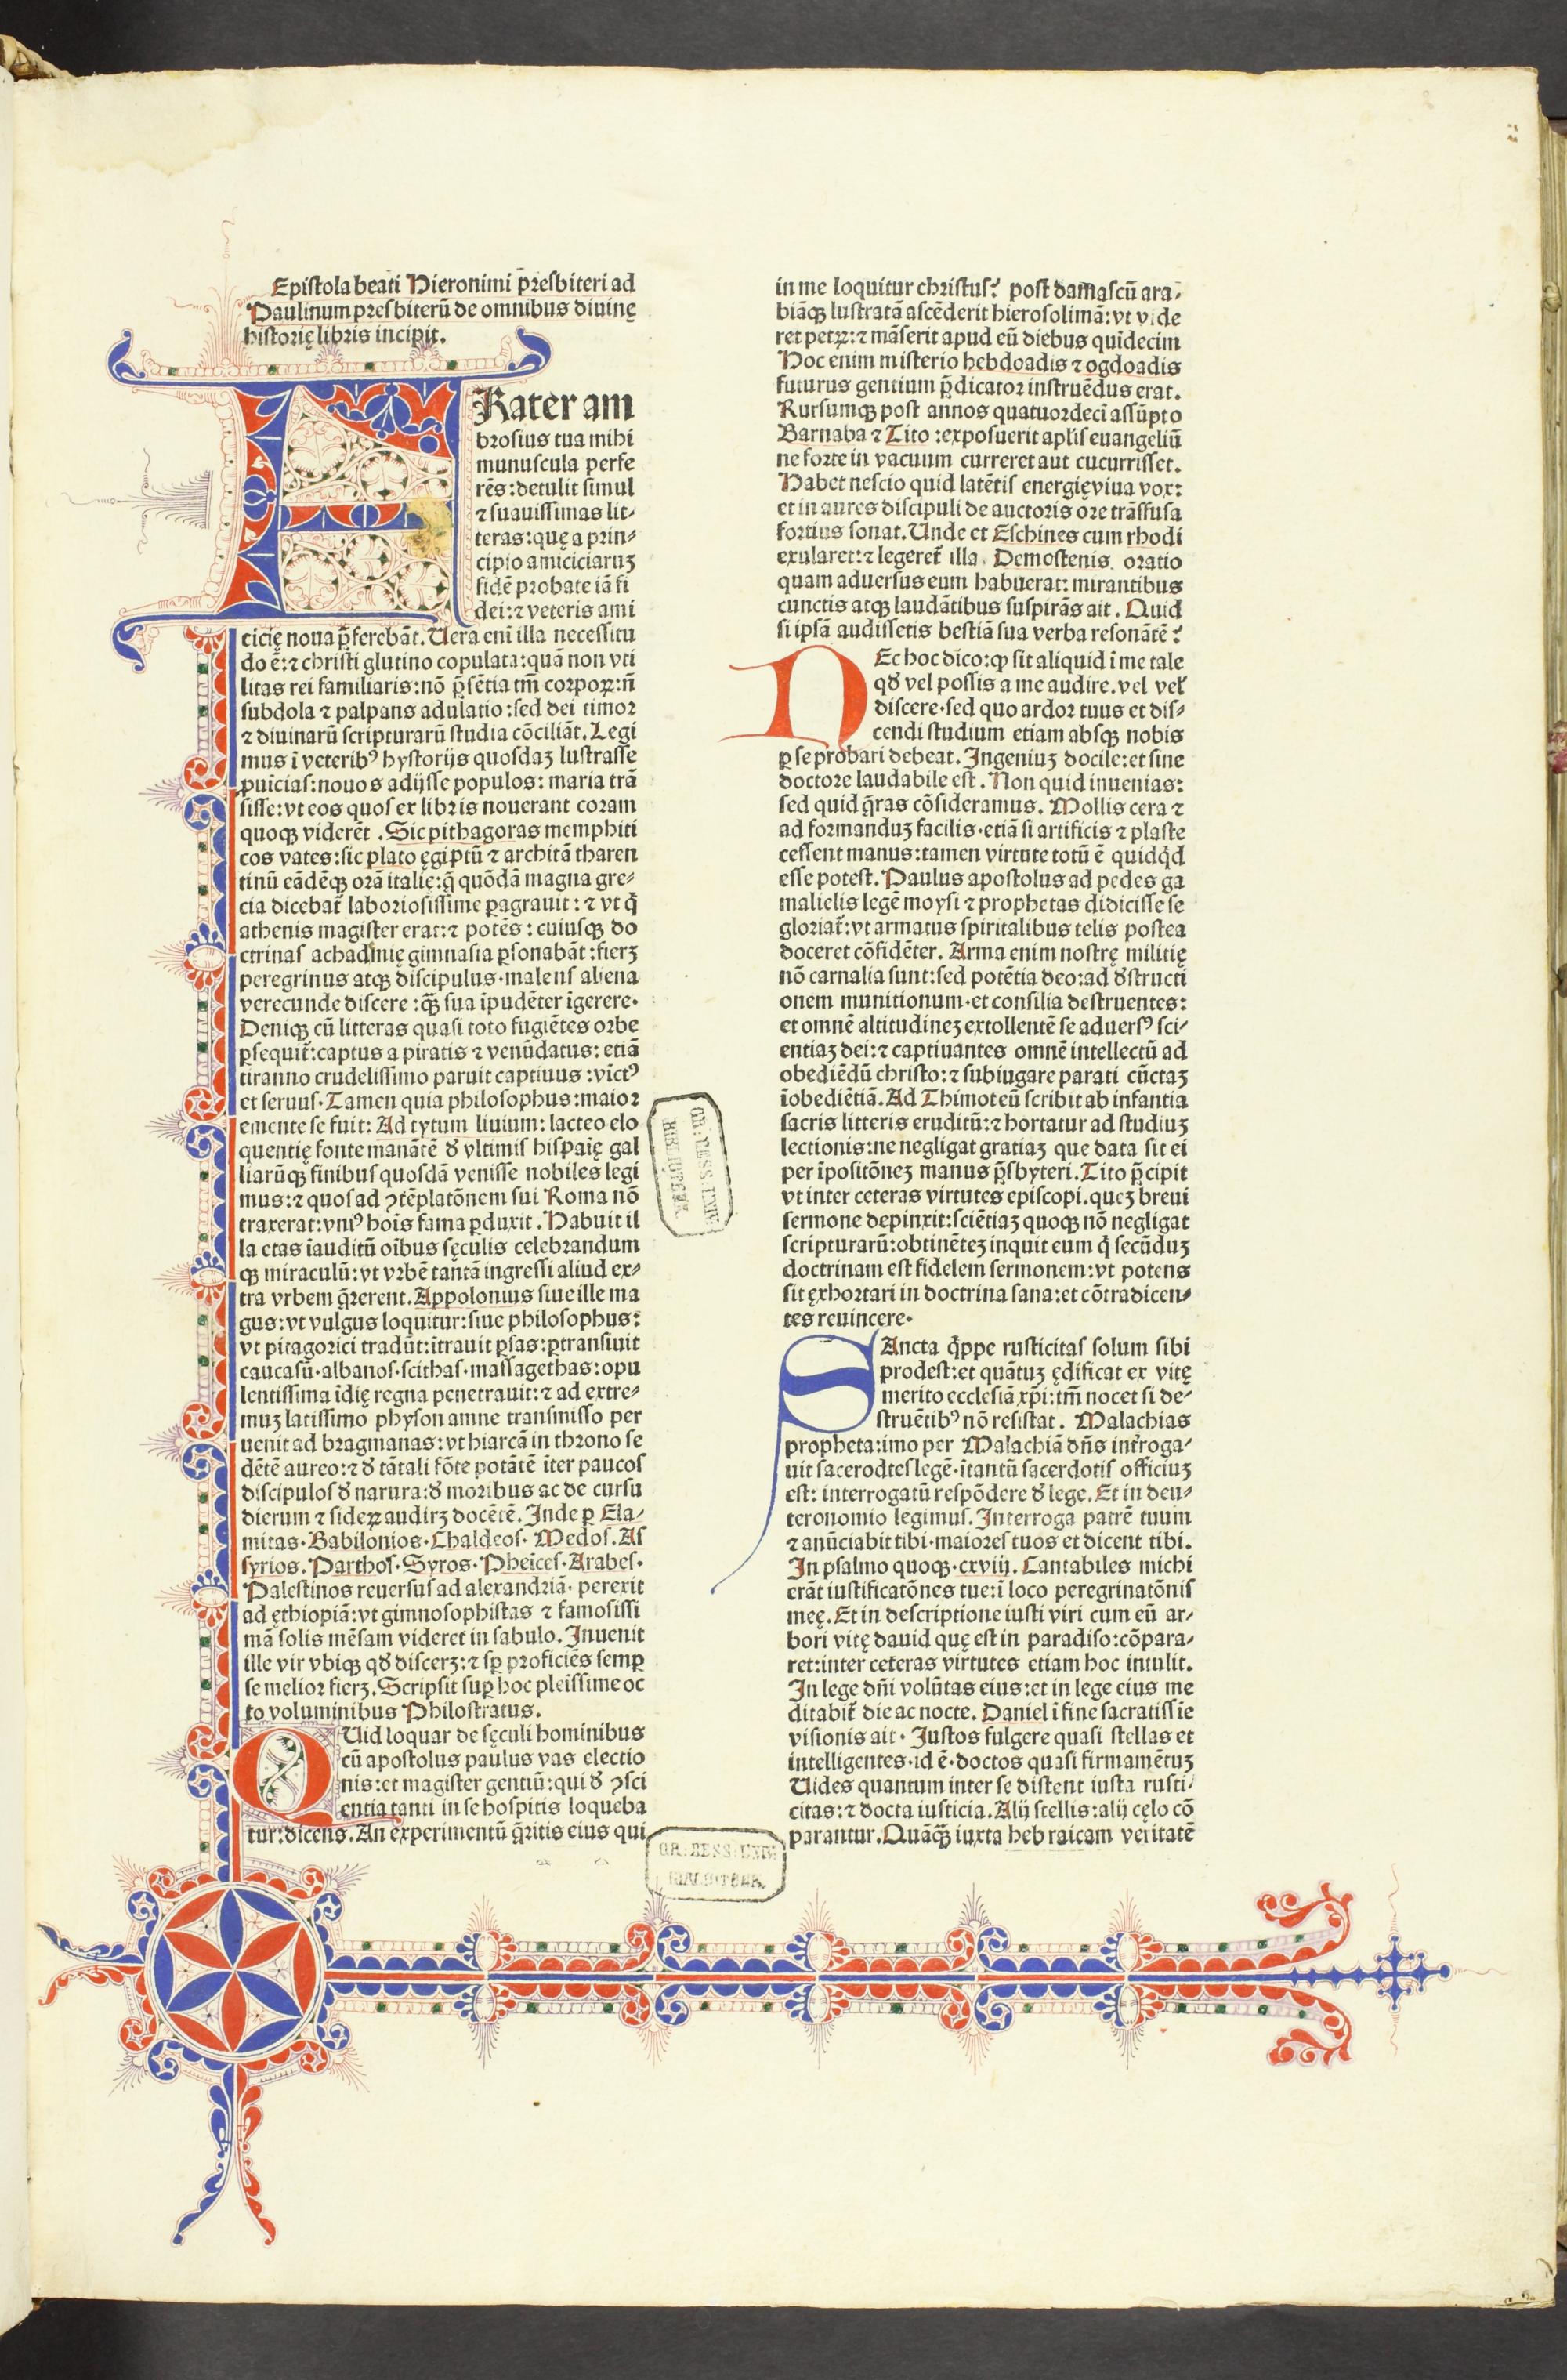 Epistola beati Hieronimi p̄resbiteri ad
Paulinum presbiterū de omnibus diuinę
historię libris incipit.
FRater am
brosius tua mihi
munuscula perfe
rēs:detulit simul
⁊ suauissimas lit⸗
teras:quę a prin⸗
cipio amiciciaruꝫ
fidē probate iā fi
dei:⁊ veteris ami
cicię noua p̄ferebāt.Uera eni illa necessitu
do ē:⁊ christi glutino copulata:quā non vti
litas rei familiaris:nō p̄sētia tm̄ corpoꝝ:n̄
subdola ⁊ palpans adulatio:sed dei timor
⁊ diuinarū scripturarū studia cōciliāt.Legi
mus ī veteribꝰ hystorijs quosdaꝫ lustrasse
ꝓuīcias:nouos adijsse populos:maria trā
sisse:vt eos quos ex libris nouerant coram
quoqꝫ viderēt .Sic pithagoras memphiti
cos vates:sic plato ęgiptū ⁊ architā tharen
tinū eādēqꝫ orā italię:q̄ quōdā magna gre⸗
cia dicebat̄ laboriosissime ꝑagrauit:⁊ vt q̇
athenis magister erat:⁊ potēs:cuiusqꝫ do
ctrinas achadmię gimnasia ꝑsonabāt:fierꝫ
peregrinus atqꝫ discipulus·malens aliena
verecunde discere:q̄ꝫ sua īpudēter īgerere·
Deniqꝫ cū litteras quasi toto fugiētes orbe
ꝑsequit̄:captus a piratis ⁊ venūdatus:etiā
tiranno crudelissimo paruit captiuus:vīctꝰ
et seruus·Tamen quia philosophus:maior
emente se fuit:Ad tytum liuium:lacteo elo
quentię fonte manātē ꝺ̄ vltimis hispaīę gal
liarūqꝫ finibus quosdā venisse nobiles legi
mus:⁊ quos ad ꝯtēplatōnem sui Roma nō
traxerat:vniꝰ hoīs fama ꝑduxit.Habuit il
la etas īauditū oībus sęculis celebrandum
qꝫ miraculū:vt vrbē tantā ingressi aliud ex⸗
tra vrbem q̄rerent.Appolonius siue ille ma
gus:vt vulgus loquitur:siue philosophus:
vt pitagorici tradūt:ītrauit ꝑsas:ꝑtransiuit
caucasū·albanos·scithas·massagethas:opu
lentissima īdię regna penetrauit:⁊ ad extre⸗
muꝫ latissimo physon amne transmisso per
uenit ad bragmanas:vt hiarcā in throno se
dētē aureo:⁊ ꝺ̄ tātali fōte potātē īter paucos
discipulos ꝺ̄ narura:ꝺ̄ moribus ac de cursu
dierum ⁊ sideꝝ audirꝫ docētē.Inde ꝑ Ela⸗
mitas·Babilonios·Chaldeos·Medos.As
syrios.Parthos·Syros·Pheīces·Arabes·
Palestinos reuersus ad alexandriā·perexit
ad ęthiopiā:vt gimnosophistas ⁊ famosissi
mā solis mēsam videret in sabulo.Inuenit
ille vir vbiqꝫ qꝺ̄ discerꝫ:⁊ sꝑ proficiēs semꝑ
se melior fierꝫ.Scripsit suꝑ hoc pleīssime oc
to voluminibus Philostratus.
QUid loquar de sęculi hominibus
cū apostolus paulus vas electio
nis:et magister gentiū:qui ꝺ̄ ꝯsci
entia tanti in se hospitis loqueba
tur:dicens.An experimentū q̄ritis eius qui
in me loquitur christus? post damascū ara⸗
biāqꝫ lustratā ascēderit hierosolimā:vt vide
ret petꝝ:⁊ māserit apud eū diebus quīdecim
Hoc enim misterio hebdoadis ⁊ ogdoadis
futurus gentium p̄dicator instruēdus erat.
Rursumqꝫ post annos quatuordecī assūpto
Barnaba ⁊ Tito:exposuerit apl̄is euangeliū
ne forte in vacuum curreret aut cucurrisset.
Habet nescio quid latētis energię viua vox:
et in aures discipuli de auctoris ore trāsfusa
fortius sonat.Unde et Eschines cum rhodi
exularet:⁊ legeret̄ illa Demostenis oratio
quam aduersus eum habuerat:mirantibus
cunctis atqꝫ laudātibus suspirās ait.Quid
si ipsā audissetis bestiā sua verba resonātē?
NEc hoc dico:ꝙ sit aliquid ī me tale
qꝺ̄ vel possis a me audire.vel vel̄
discere·sed quo ardor tuus et dis⸗
cendi studium etiam absqꝫ nobis
ꝑ se probari debeat.Ingeniuꝫ docile:et sine
doctore laudabile est.Non quid inuenias:
sed quid q̄ras cōsideramus.Mollis cera ⁊
ad formanduꝫ facilis·etiā si artificis ⁊ plaste
cessent manus:tamen virtute totū ē quidq̇d
esse potest.Paulus apostolus ad pedes ga
malielis legē moysi ⁊ prophetas didicisse se
gloriat̄:vt armatus spiritalibus telis postea
doceret cōfidēter.Arma enim nostrę militię
nō carnalia sunt:sed potētia deo:ad ꝺ̄structi
onem munitionum·et consilia destruentes:
et omnē altitudineꝫ extollentē se aduersꝰ sci⸗
entiaꝫ dei:⁊ captiuantes omnē intellectū ad
obediēdū christo:⁊ subiugare parati cūctaꝫ
īobediētiā.Ad Thimoteū scribit ab infantia
sacris litteris eruditū:⁊ hortatur ad studiuꝫ
lectionis:ne negligat gratiaꝫ que data sit ei
per īpositōneꝫ manus p̄sbyteri.Tito p̄cipit
vt inter ceteras virtutes episcopi.queꝫ breui
sermone depinxit:sciētiaꝫ quoqꝫ nō negligat
scripturarū:obtinēteꝫ inquit eum q̇ secūduꝫ
doctrinam est fidelem sermonem:vt potens
sit ęxhortari in doctrina sana:et cōtradicen⸗
tes reuincere·
SAncta q̇ppe rusticitas solum sibi
prodest:et quātuꝫ ędificat ex vitę
merito ecclesiā xp̄i:tm̄ nocet si de⸗
struētibꝰ nō resistat. Malachias
propheta:imo per Malachiā dn̄s int̄roga⸗
uit sacerodtes legē·ītantū sacerdotis officiuꝫ
est: interrogatū respōdere ꝺ̄ lege.Et in deu⸗
teronomio legimus.Interroga patrē tuum
⁊ anūciabit tibi·maiores tuos et dicent tibi.
In psalmo quoqꝫ·cxviij.Cantabiles michi
erāt iustificatōnes tue:ī loco peregrinatōnis
meę.Et in descriptione iusti viri cum eū ar⸗
bori vitę dauid quę est in paradiso:cōpara⸗
ret:inter ceteras virtutes etiam hoc intulit.
In lege dn̄i volūtas eius:et in lege eius me
ditabit̄ die ac nocte.Daniel ī fine sacratissīe
visionis ait·Iustos fulgere quasi stellas et
intelligentes·id ē·doctos quasi firmamētuꝫ
Uides quantum inter se distent iusta rusti⸗
citas:⁊ docta iusticia.Alij stellis:alij cęlo cō
parantur.Quāq̄ꝫ iuxta hebraicam veritatē
GR:HESS:UNIV:
BIBLIOTHEK.
GR:HESS:UNIV:
BIBLIOTHEK.